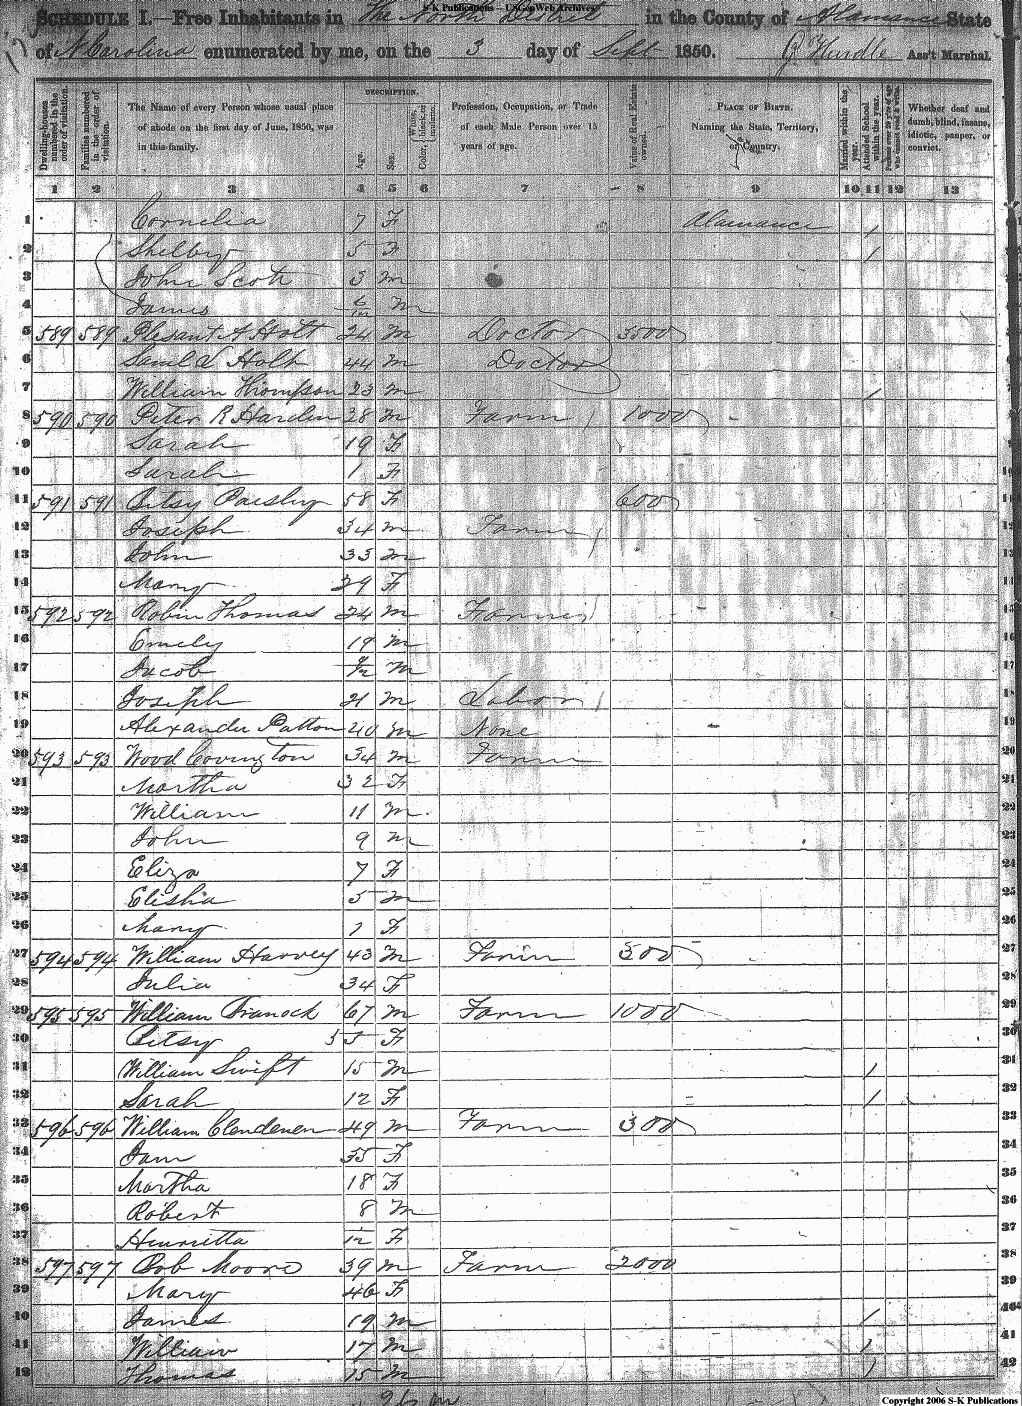 S-K Publications - USGenWeb Archives
SCHEDULE I.—Free Inhabitants in The North District in the County of Alamance State
of N Carolina enumerated by me, on the 3 day of Sept 1850. Ass't Marshal.
Dwelling-houses numbered in the order of visitation.
Families numbered in the order of visitation.
The Name of every Person whose usual place of abode on the first day of June, 1850, was in this family.
DESCRIPTION.
Age.
Sex.
Color, White, black, or mulatto.
Profession, Occupation, or Trade of each Male Person over 15 years of age.
Value of Real Estate owned.
PLACE OF BIRTH.
Naming the State, Territory, or Country.
Married within the year.
Attended School within the year.
Persons over 20 y'rs of age who cannot read & write.
Whether deaf and dumb, blind, insane, idiotic, pauper, or convict.
1 2 3 4 5 6 7 8 9 10 11 12 13
1 Cornelia 7 F Alamance /
2 Shelby 5 F /
3 John Scott 3 m
4 James 6/12 M
5 589 589 Plesant A Holt 24 M Doctor 3500
6 Saml S Holt 44 m Doctor
7 William Thompson 23 m /
8 590 590 Peter R Hardin 28 m Farm 1000
9 Sarah 19 F
10 Sarah 1 F
11 591 591 Betsy Paisley 58 F 600
12 Joseph 34 m Farm
13 John 33 m
14 Mary 29 F
15 592 592 Robin Thomas 24 m Farmer
16 Emely 19 M
17 Jacob M
18 Joseph 21 m Labor
19 Alexander Patton 40 m None
20 593 593 Wood Covington 34 m Farm
21 Martha 32 F
22 William 11 m
23 John 9 m
24 Eliza 7 F
25 Elisha 5 m
26 Mary 1 F
27 594 594 William Harvey 43 M Farm 300
28 Julia 34 F
29 595 595 William 67 m Farm 1000
30 Betsy 55 F
31 William Swift 15 M /
32 Sarah 12 F /
33 596 596 William Clendenen 49 m Farm 300
34 Jam 35 F
35 Martha 18 F
36 Robert 8 M
37 Henrietta 1/12 F
38 597 597 Rob Moore 39 m Farm 2000
39 Mary 46 F
40 James 19 M /
41 William 17 M /
42 Thomas 15 M /
Copyright 2006 S-K Publications